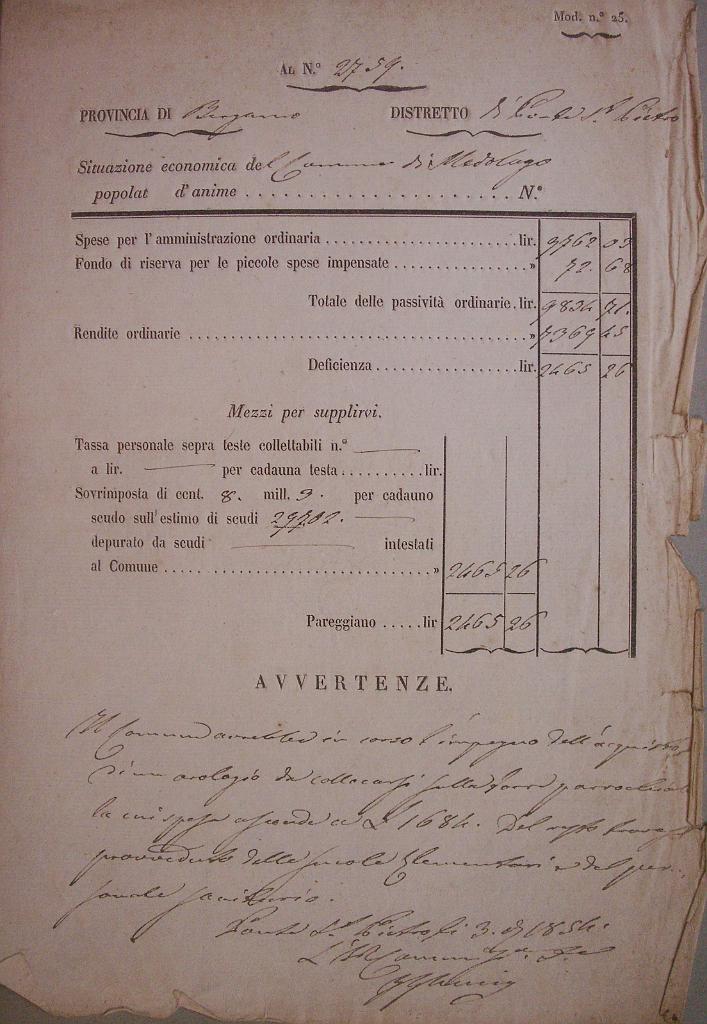 Mod. n.º 25.
AL N.º 2759.
PROVINCIA DI Bergamo DISTRETTO di Ponte S. Pietro
Situazione economica del Comune di Medolago
popolat d'anime . . . . . . . . . . . . . . . . . . . . . . . N.º
Spese per l'amministrazione ordinaria . . . . . . . . . . . . . . . . . . . . . lir. 9762 03
Fondo di riserva per le piccole spese impensate . . . . . . . . . . . . . » 72. 68
Totale delle passività ordinarie. lir. 9834 71.
Rendite ordinarie . . . . . . . . . . . . . . . . . . . . . . . . . . . . . . . . . . . . » 7369 45
Deficienza . . . . . . . . . . . . . . . lir. 2465 26
Mezzi per supplirvi.
Tassa personale sepra teste collettabili n.º
a lir. per cadauna testa . . . . . . . . . lir.
Sovrimposta di cent. 8. mill. 3. per cadauno
scudo sull'estimo di scudi 29702.
depurato da scudi intestati
al Comune . . . . . . . . . . . . . . . . . . . . . . . . . . . . » 2465 26
Pareggiano . . . . . lir 2465 26
AVVERTENZE.
Il Comune avrebbe in corso l'impegno dell'acquisto
di un orologio da collocarsi sulla torre parrocchiale
la cui spesa ascende a L 1684. Del resto trovasi
provveduto delle scuole Elementari e del per-
sonale sanitario.
Ponte S. Pietro li 3. 1854.
L'IR Comm